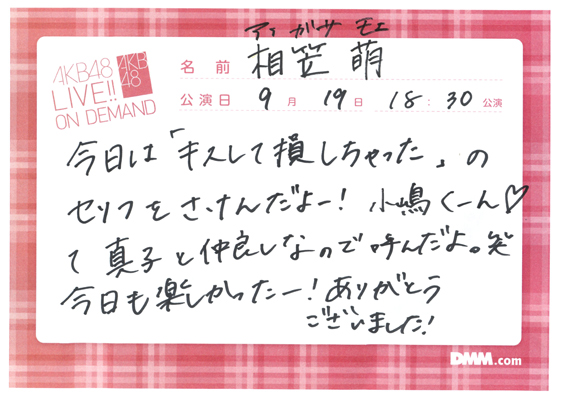 アイ ガサ モエ
AKB48
LIVE!!
ON DEMAND
AKB
48
名 前 相笠 萌
公演日 9 月 19 日 18 : 30 公演
今日は「キスして損しちゃった」の
セリフをさけんだよー! 小嶋くーん♡
て 真子と仲良しなので呼んだよ。笑
今日も楽しかったー! ありがとう
ございました!
DMM.com